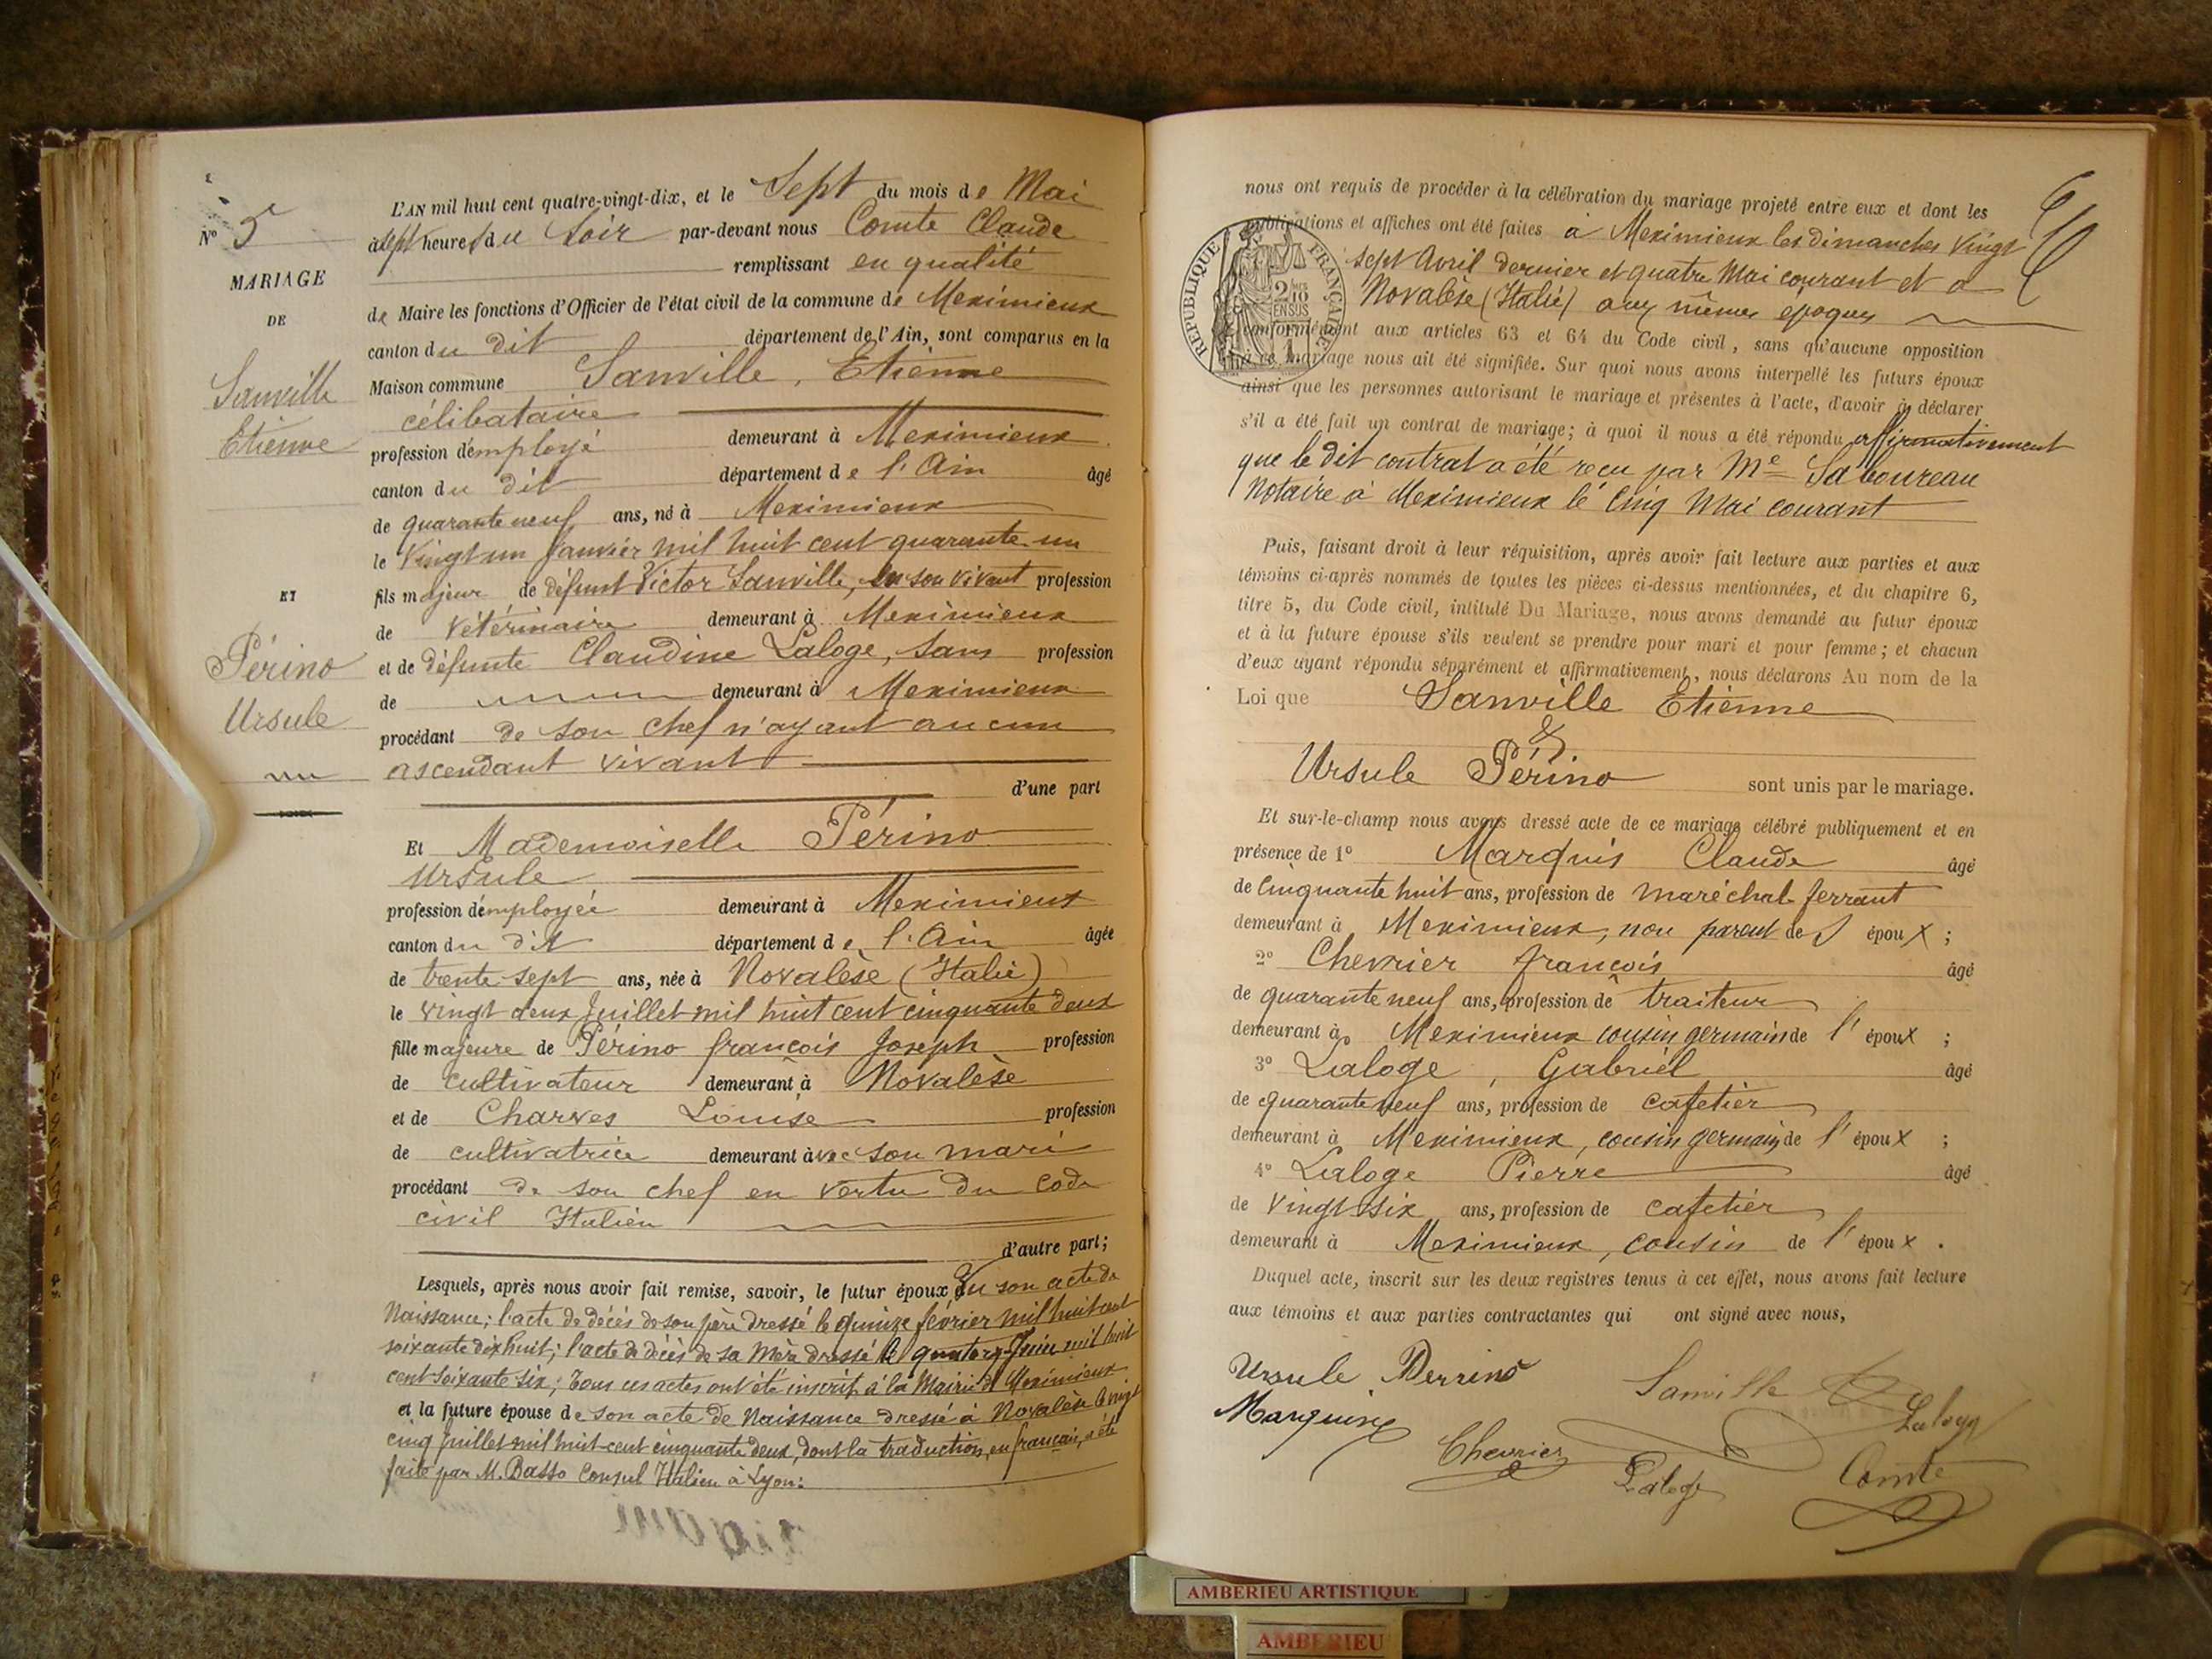 Nº 5
MARIAGE
DE
Sanville
Etienne
ET
Périno
Ursule
L'AN mil huit cent quatre-vingt-dix, et le Sept du mois de Mai
à sept heures du Soir par-devant nous Comte Claude
remplissant en qualité
de Maire les fonctions d'Officier de l'état civil de la commune de Meximieux
canton du dit département de l'Ain, sont comparus en la
Maison commune Sanville, Etienne
célibataire
profession d'employé demeurant à Meximieux
canton du dit département de l'Ain âgé
de quarante neuf ans, né à Meximieux
le Vingt un Janvier mil huit cent quarante un
fils majeur de défunt Victor Sanville, en son vivant profession
de Vétérinaire demeurant à Meximieux
et de défunte Claudine Laloge, Sans profession
de demeurant à Meximieux
procédant de son chef n'ayant aucun
ascendant vivant
d'une part
Et Mademoiselle Périno
Ursule
profession d'employée demeurant à Meximieux
canton du dit département de l'Ain âgée
de trente-sept ans, née à Novalèse (Italie)
le vingt deux Juillet mil huit cent cinquante deux
fille majeure de Périno françois Joseph profession
de cultivateur demeurant à Novalèse
et de Charves Louise profession
de cultivatrice demeurant avec son mari
procédant de son chef en vertu du code
civil Italien
d'autre part;
Lesquels, après nous avoir fait remise, savoir, le futur époux Du son acte de
Naissance; l'acte de décès de son père dressé le quinze février mil huit cent
soixante dix huit; l'acte de décès de sa Mère dressé le quatorze Juin mil huit
cent soixante six; tous ces actes ont été inscrits à la Mairie de Meximieux
et la future épouse de son acte de Naissance dressé à Novalèse le vingt
cinq Juillet mil huit-cent cinquante deux, dont la traduction, en français, a été
faite par M. Basso Consul Italien à Lyon:
nous ont requis de procéder à la célébration du mariage projeté entre eux et dont les
publications et affiches ont été faites à Meximieux les dimanches vingt
sept Avril dernier et quatre Mai courant et à
Novalèse (Italie) aux mêmes époques
conformément aux articles 63 et 64 du Code civil, sans qu'aucune opposition
à ce mariage nous ait été signifiée. Sur quoi nous avons interpellé les futurs époux
ainsi que les personnes autorisant le mariage et présentes à l'acte, d'avoir à déclarer
s'il a été fait un contrat de mariage; à quoi il nous a été répondu affirmativement
que le dit contrat a été reçu par Me Saboureau
Notaire à Meximieux le Cinq Mai courant
RÉPUBLIQUE FRANÇAISE
2/10 EN SUS
Puis, faisant droit à leur réquisition, après avoir fait lecture aux parties et aux
témoins ci-après nommés de toutes les pièces ci-dessus mentionnées, et du chapitre 6,
titre 5, du Code civil, intitulé Du Mariage, nous avons demandé au futur époux
et à la future épouse s'ils veulent se prendre pour mari et pour femme; et chacun
d'eux ayant répondu séparément et affirmativement, nous déclarons Au nom de la
Loi que Sanville Etienne
&
Ursule Périno sont unis par le mariage.
Et sur-le-champ nous avons dressé acte de ce mariage célébré publiquement et en
présence de 1º Marquis Claude âgé
de Cinquante huit ans, profession de maréchal-ferrant
demeurant à Meximieux, non parent des époux ;
2º Chevrier françois âgé
de quarante neuf ans, profession de traiteur
demeurant à Meximieux cousin germain de l'époux ;
3º Laloge, Gabriel âgé
de quarante neuf ans, profession de cafetier
demeurant à Meximieux, cousin germain de l'époux ;
4º Laloge Pierre âgé
de Vingt six ans, profession de cafetier
demeurant à Meximieux, cousin de l'époux .
Duquel acte, inscrit sur les deux registres tenus à cet effet, nous avons fait lecture
aux témoins et aux parties contractantes qui ont signé avec nous,
Ursule Perrino Sanville
Laloge
Chevrier Laloge Comte
AMBERIEU ARTISTIQUE
AMBERIEU